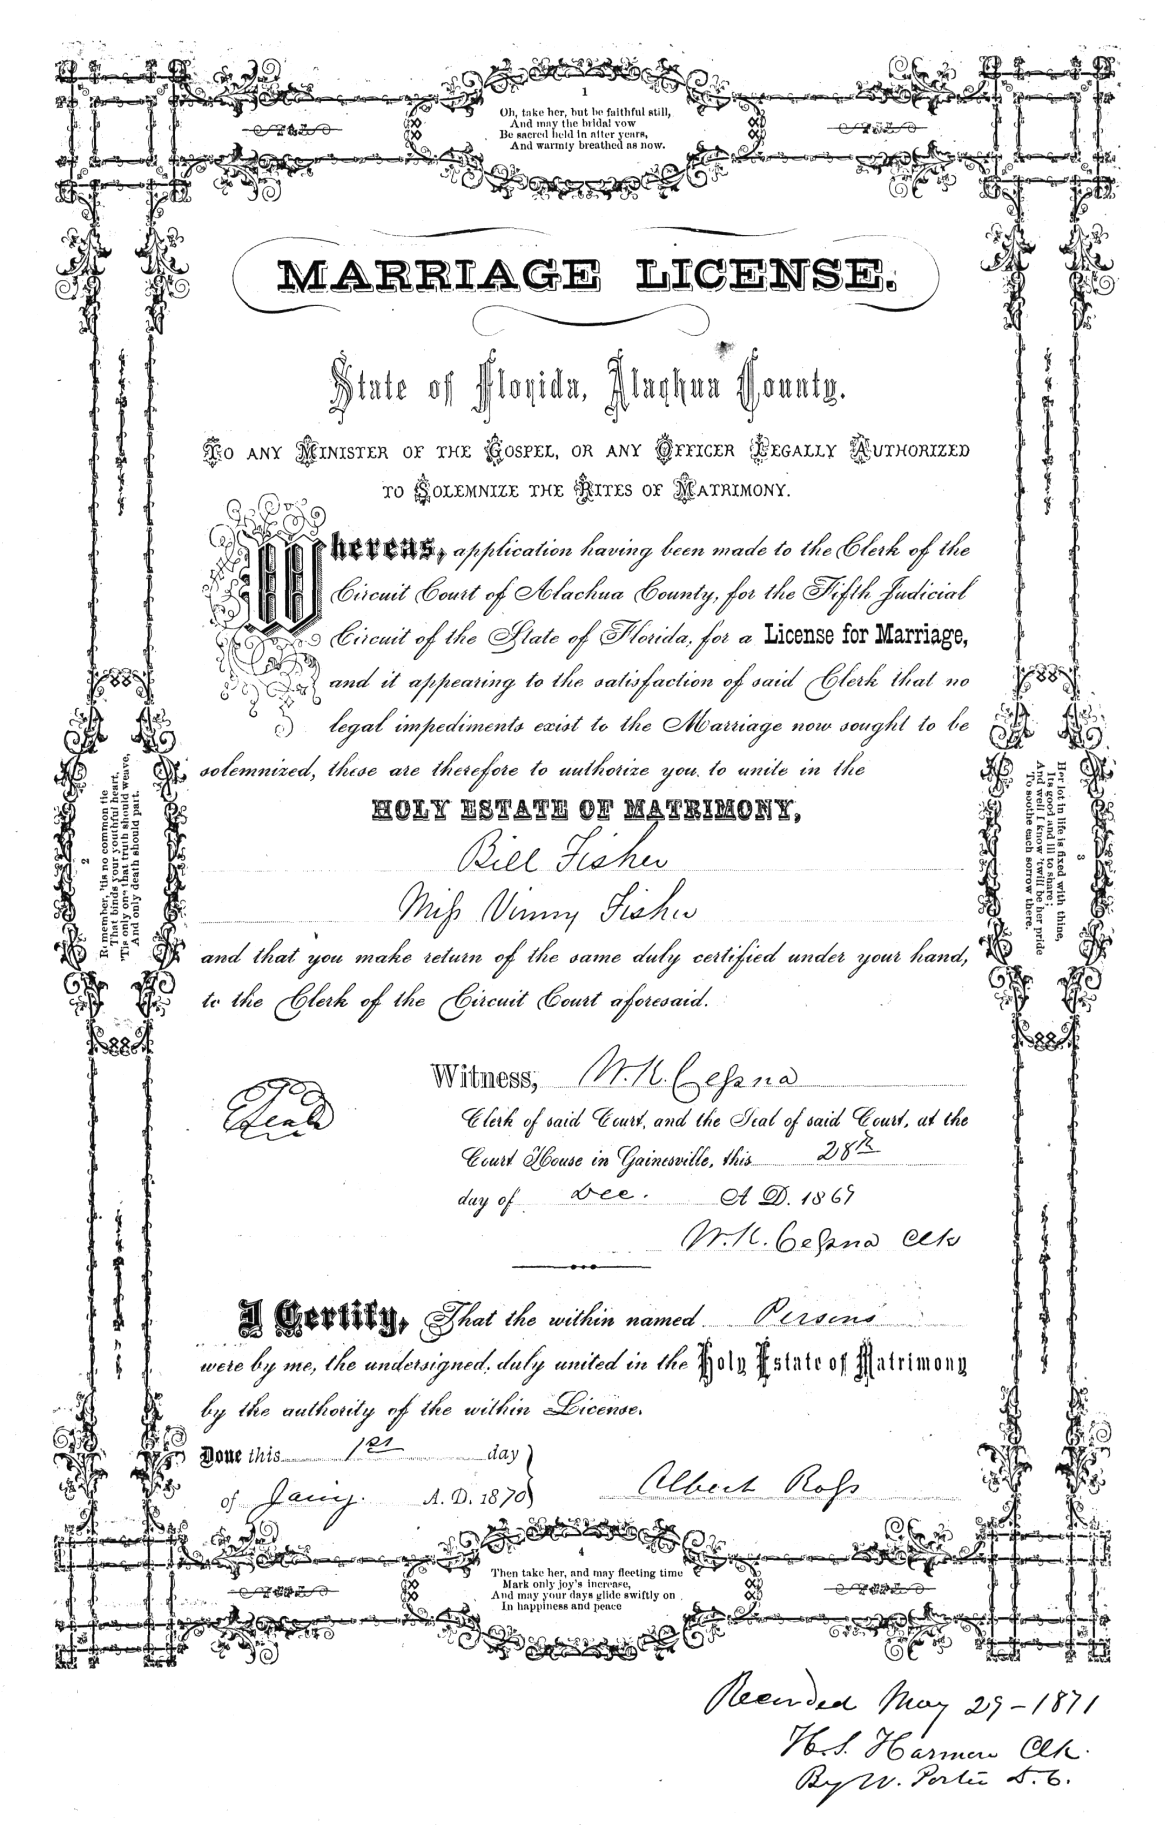 1
Oh, take her, but be faithful still,
And may the bridal vow
Be sacred held in after years,
And warmly breathed as now.
MARRIAGE LICENSE.
State of Florida, Alachua County.
TO ANY MINISTER OF THE GOSPEL, OR ANY OFFICER LEGALLY AUTHORIZED
TO SOLEMNIZE THE RITES OF MATRIMONY.
Whereas, application having been made to the Clerk of the
Circuit Court of Alachua County, for the Fifth Judicial
Circuit of the State of Florida, for a License for Marriage,
and it appearing to the satisfaction of said Clerk that no
legal impediments exist to the Marriage now sought to be
solemnized, these are therefore to authorize you to unite in the
HOLY ESTATE OF MATRIMONY,
Bill Fisher
Miss Vinny Fisher
and that you make return of the same duly certified under your hand,
to the Clerk of the Circuit Court aforesaid.
Witness, W. K. Cessna
Seal
Clerk of said Court, and the Seal of said Court, at the
Court House in Gainesville, this 28th
day of Dec. A. D. 1869
W. K. Cessna Clk
I Certify, That the within named Persons
were by me, the undersigned, duly united in the Holy Estate of Matrimony
by the authority of the within License.
Done this 1st day
of Jany. A. D. 1870
Albert Ross
2
Remember, 'tis no common tie
That binds your youthful heart,
'Tis only one that truth should weave,
And only death should part.
3
Her lot in life is fixed with thine,
Its good and ill to share;
And well I know 'twill be her pride
To soothe each sorrow there.
4
Then take her, and may fleeting time
Mark only joy's increase,
And may your days glide swiftly on
In happiness and peace
Recorded May 29-1871
H. S. Harmon Clk.
By W. Porter D. C.